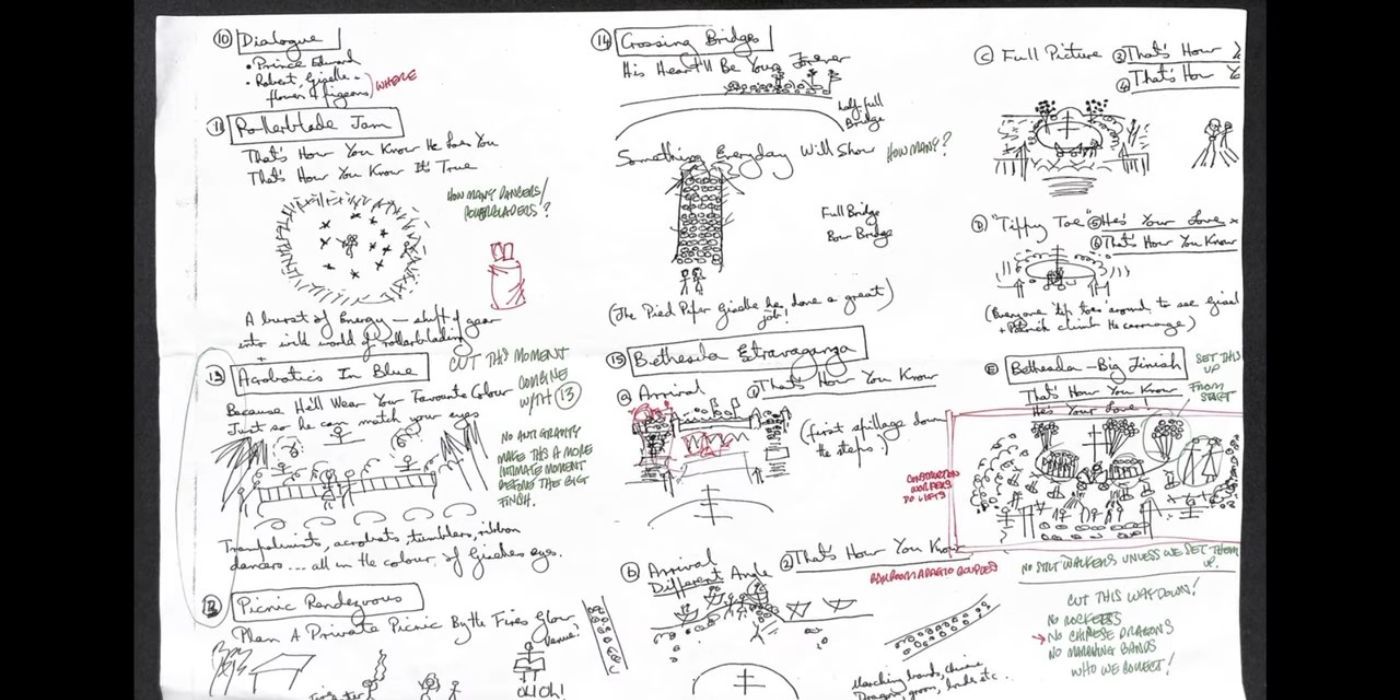 10 Dialogue
• Prince Edward
• Robert, Giselle
flower & pigeons
WHERE
11 Rollerblade Jam
That's How You Know He Loves You
That's How You Know It's True
HOW MANY DANCERS/
ROLLERBLADERS?
A burst of Energy – shift of gear
into wild world of rollerblading
CUT THIS MOMENT
COMBINE
W/TH 13
Acrobatics In Blue
Because He'll Wear Your Favourite Colour
Just so he can match your eyes
NO ANTI GRAVITY
MAKE THIS A MORE
INTIMATE MOMENT
BEFORE THE BIG
FINISH.
Trampolinists, acrobats, tumblers, ribbon
dancers... all in the colour of Giselles eyes.
Picnic Rendezvous
Plan A Private Picnic By the Fires Glow
OhOh!
14 Crossing Bridges
His Heart'll Be Yours Forever
half full
Bridge
Something Everyday Will Show
HOW MANY?
Full Bridge
Bow Bridge
(The Pied Piper Giselle has done a great
job!)
15 Bethesda Extravaganza
a Arrival
1 That's How You Know
(first spillage down
the steps!)
CONSTRUCTION
WORKERS
DO LIFTS
b Arrival
Different Angle
2 That's How You Know
BALLROOM ADAGIO COUPLES
Marching bands, chinese
Dragons, brides etc..
C Full Picture
3 That's How Y
4 That's How Y
D "Tippy Toe"
5 He's Your Love
6 That's How You Know
(Everyone tip toes around to see Gisel
climb the carriage)
E Bethesda – Big Finish
SET THIS
UP
FROM
START
That's How You Know
He's Your Love!
NO STILT WALKERS UNLESS WE SET THEM
UP.
CUT THIS WAY DOWN!
NO ROCKETTES
NO CHINESE DRAGONS
NO MARCHING BANDS
WHO WE COLLECT!